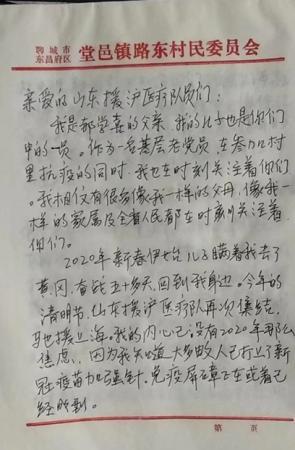 聊城市
东昌府区
堂邑镇路东村民委员会
亲爱的山东援沪医疗队员们：
我是郝学喜的父亲 我的儿子也是你们
中的一员。作为一名基层老党员 在参加村
里抗疫的同时，我也在时刻关注着你们
。我相信有很多像我一样的父母，像我一
样的家属及全省人民都在时刻关注着
你们。
2020年新春伊始 儿子瞒着我去了
黄冈，奋战五十多天，回到我身边。今年的
清明节，山东援沪医疗队再次集结，
驰援上海。我的内心已没有2020年那么
焦虑，因为我知道大多数人已打上了新
冠疫苗加强针，免疫屏障正在或者已
经形到。
第 页